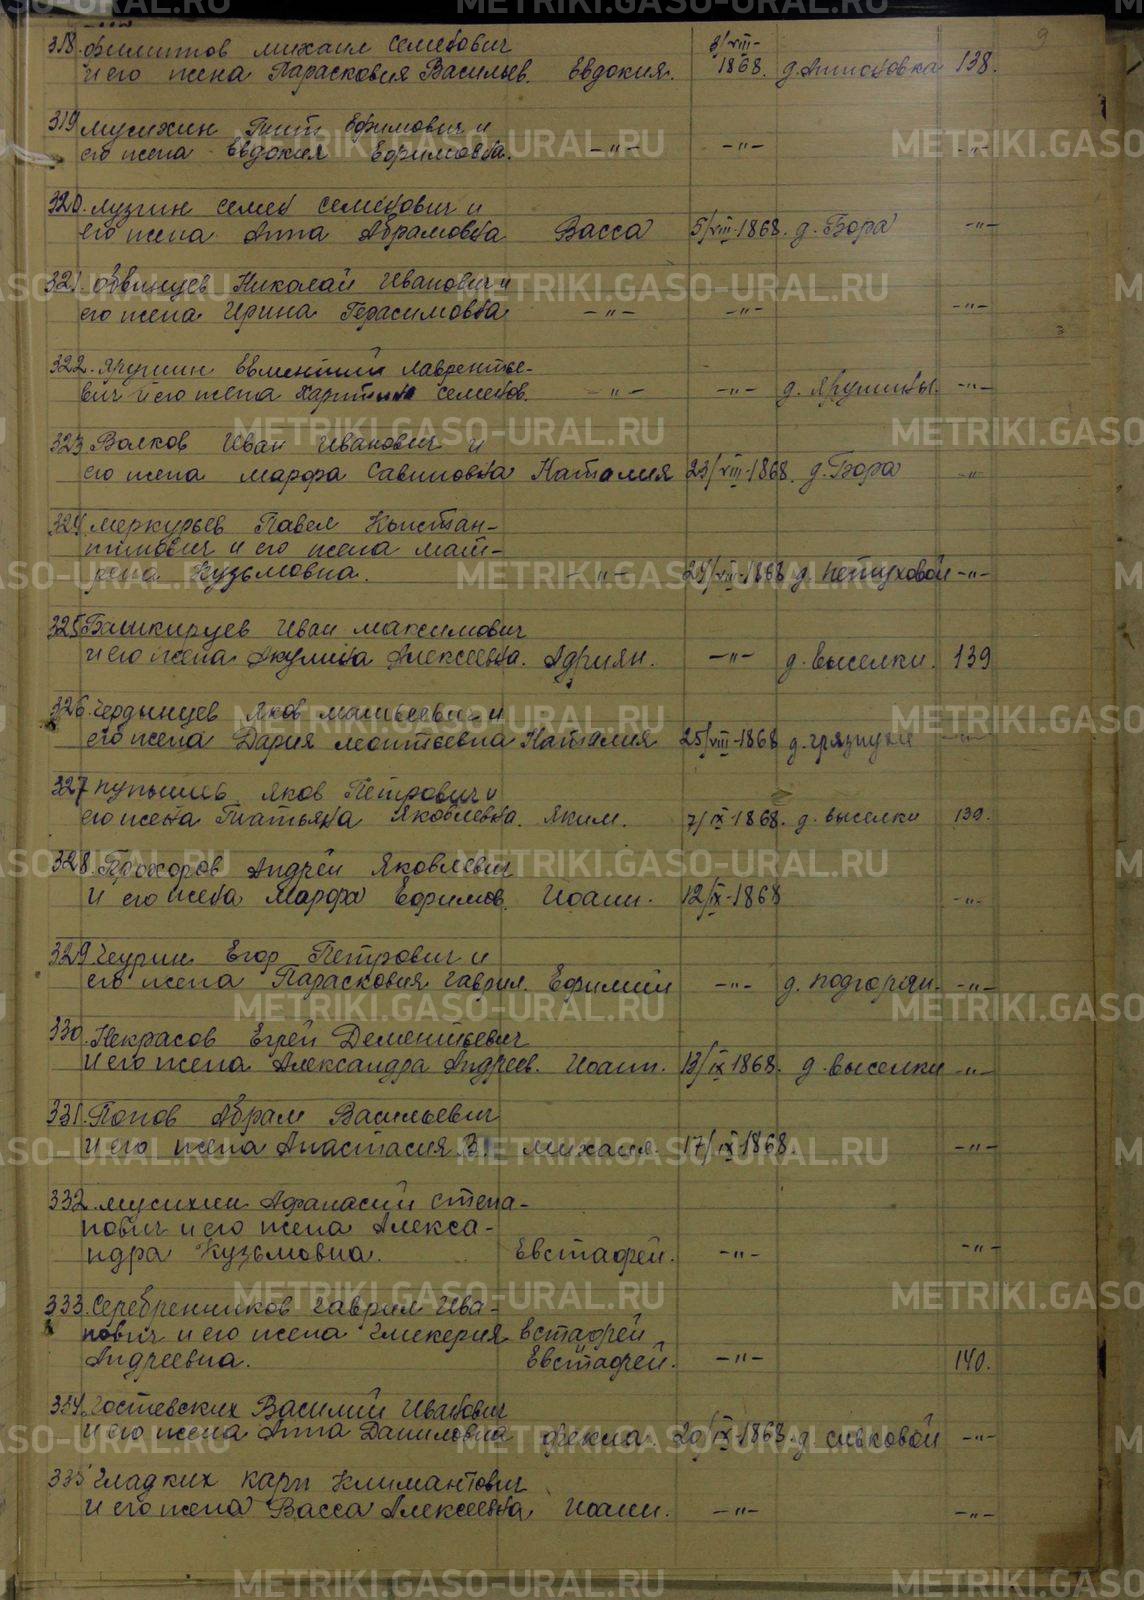 9
318. Филиппов Михаил Семенович 8/VIII-
и его жена Парасковия Васильев. Евдокия. 1868. д. Антиповка 138.
319 Мусихин Тит Ефимович и
его жена Евдокия Ефимовна. -"- -"- -"-
320. Лузгин Семен Семенович и
его жена Анна Абрамовна Васса 5/VIII-1868. д. Бора -"-
321. Обвинцев Николай Иванович и
его жена Ирина Герасимовна -"- -"- -"-
322. Ярушин Лаврентье-
вич и его жена Семенов. -"- -"- д. Ярушины. -"-
323 Волков Иван Иванович и
его жена Марфа Савиновна Наталия 23/VIII-1868. д. Бора -"-
324 Меркурьев Павел Констан-
тинович и его жена Мат-
рена Кузьмовна. -"- 24/VIII-1868 д. Петуховой -"-
325 Башкирцев Иван Максимович
и его жена Акулина Алексеевна. Адриян. -"- д. Выселки. 139
326. Чердынцев Яков Матвеевич и
его жена Дария Мантеевна Наталия 25/VIII-1868 д. Грязнухи -"-
327 Яков Петрович и
его жена Татьяна Яковлевна. Яким. 7/IX-1868. д. Выселки 139.
328. Прохоров Андрей Яковлевич
и его жена Марфа Ефимов. Иоанн. 12/IX-1868 -"-
329 Чеурин Егор Петрович и
его жена Парасковия Гаврил. Ефимий -"- д. Подгорян. -"-
330. Некрасов Егрей Дементьевич
и его жена Александра Андреев. Иоанн. 13/IX 1868. д. Выселки -"-
331. Попов Абрам Васильевич
и его жена Анастасия В. Михаил. 17/IX-1868. -"-
332. Мусихин Афанасий Степа-
нович и его жена Алекса-
ндра Кузьмовна. Евстафей. -"- -"-
333. Серебренников Гаврил Ива-
нович и его жена Гликерия встафей
Андреевна. Евстафей. -"- 140.
334. Гостевских Василий Иванович
и его жена Анна Даниловна Фекла. 20/IX-1868. д. Сивковой -"-
335 Гладких Карп Климантович
и его жена Васса Алексеевна Иоанн. -"- -"-
METRIKI.GASO-URAL.RU